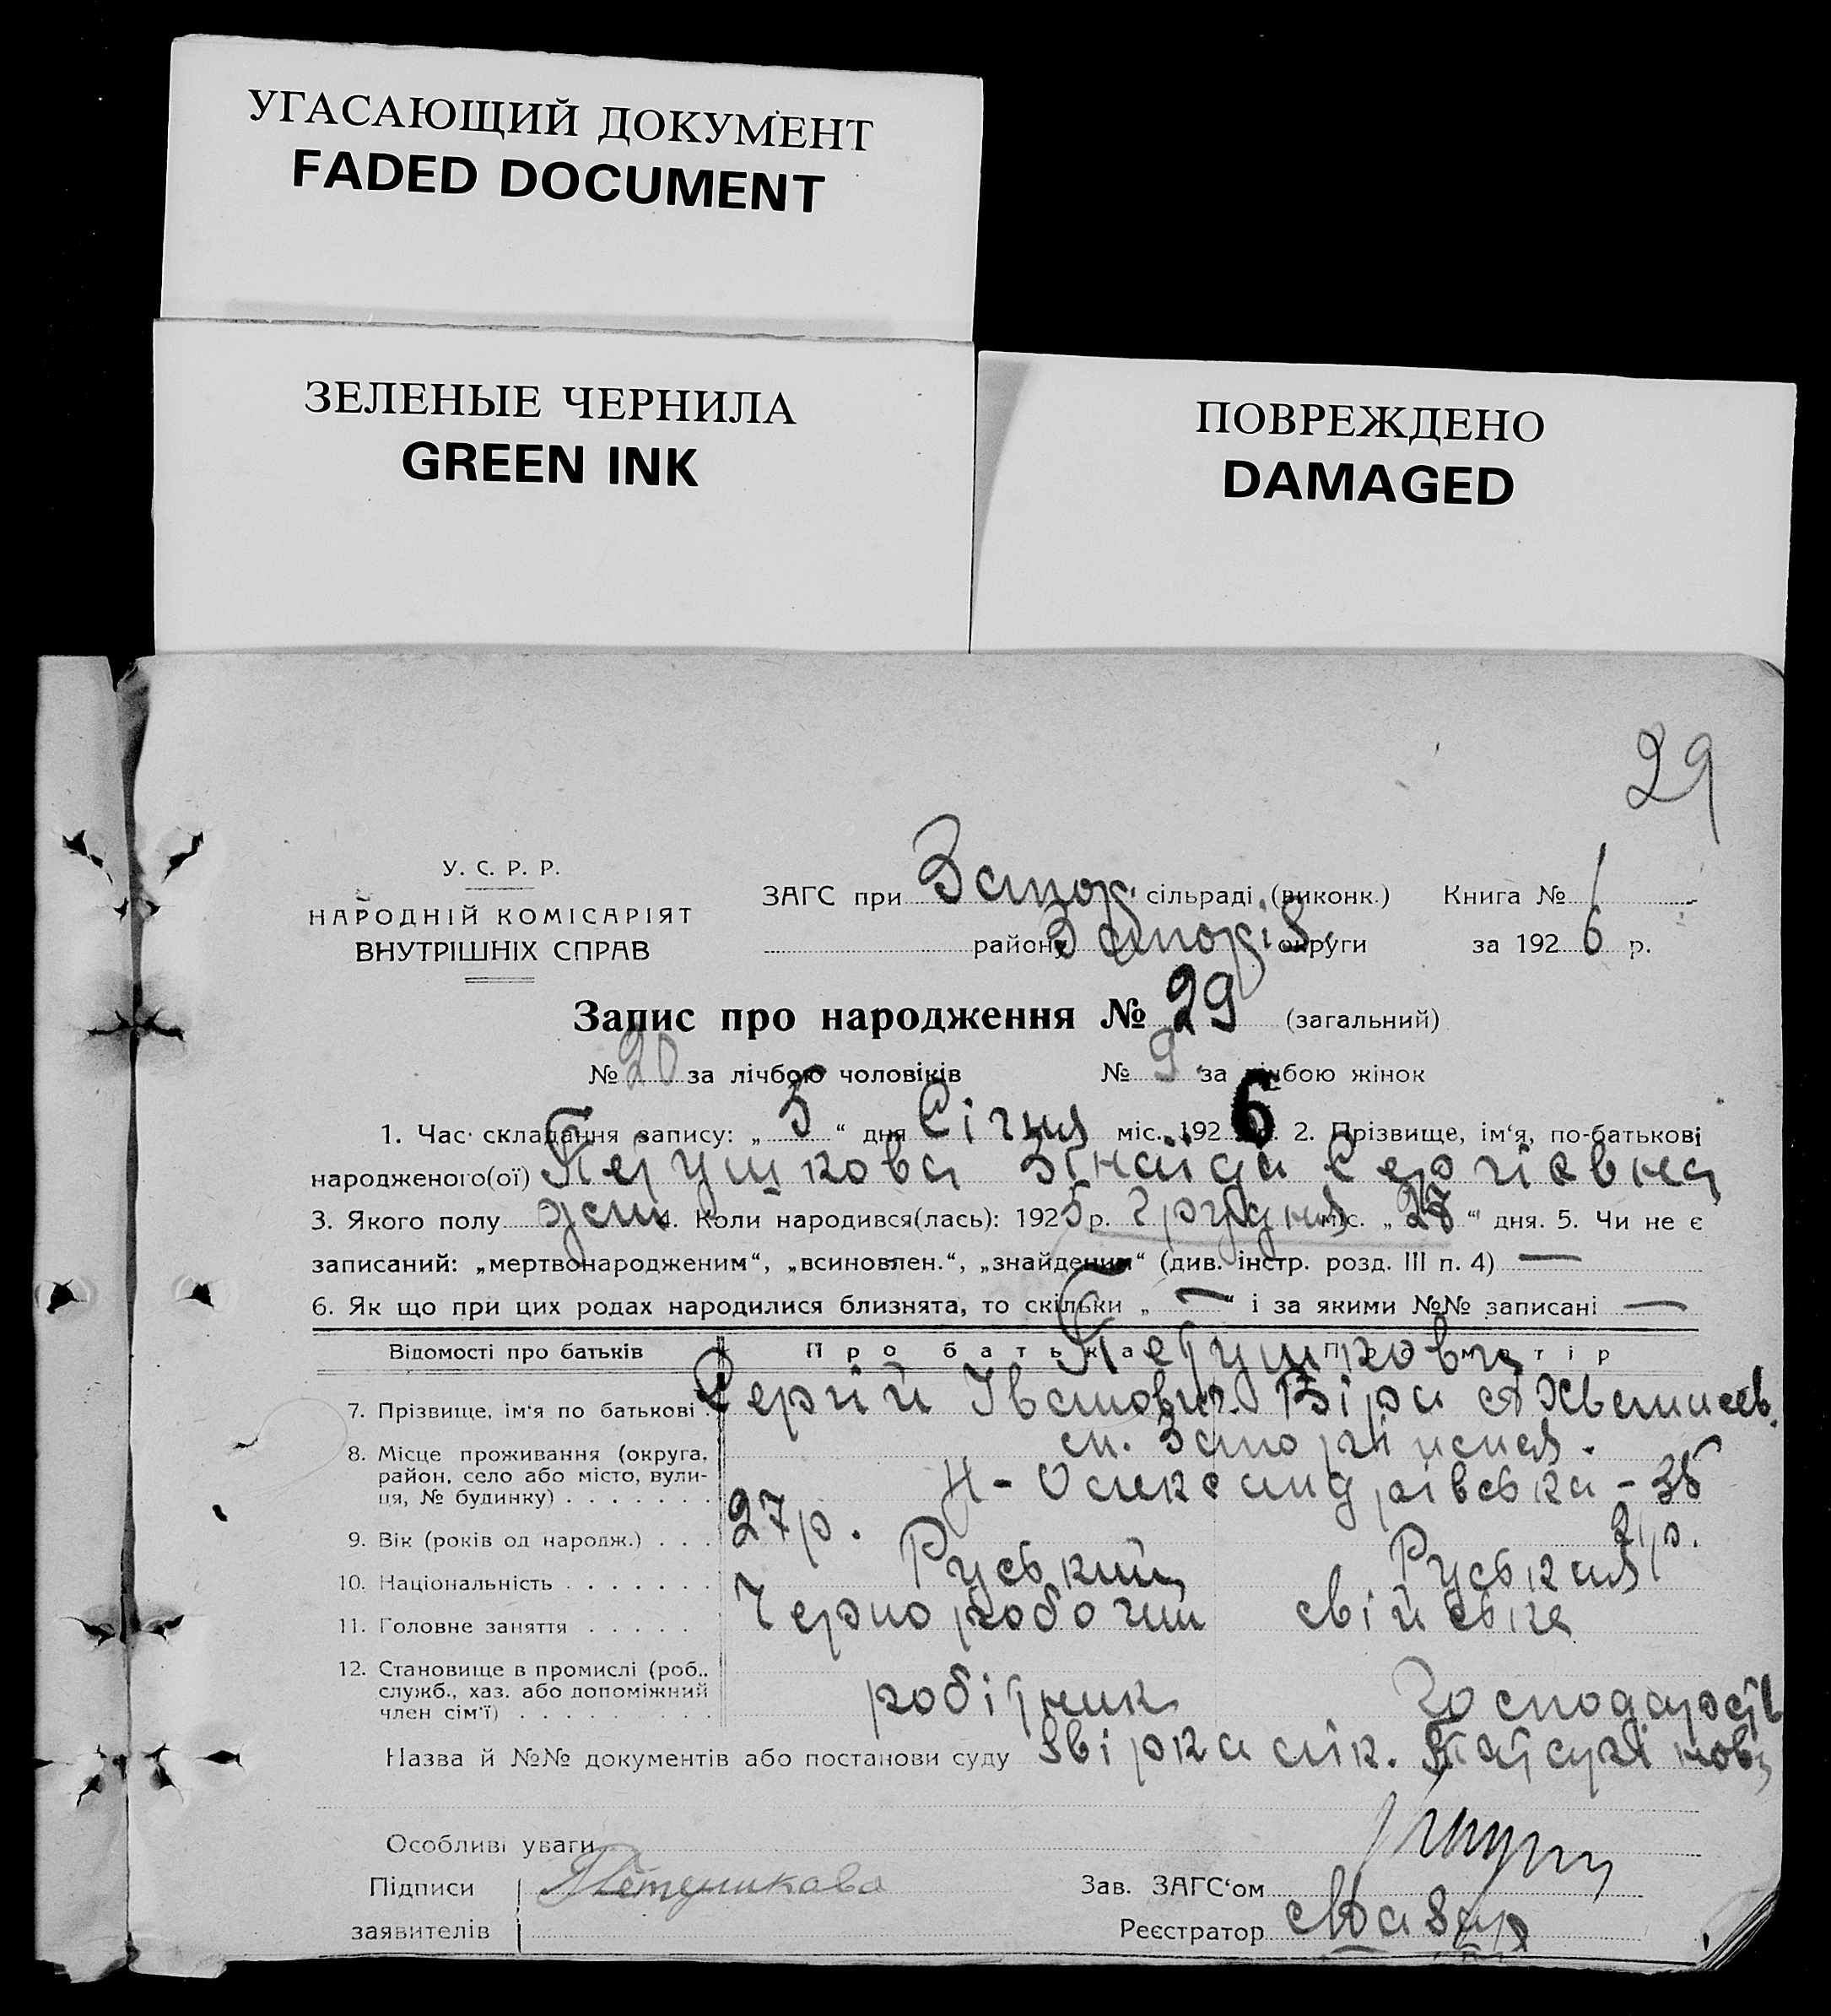 УГАСАЮЩИЙ ДОКУМЕНТ
FADED DOCUMENT
ЗЕЛЕНЫЕ ЧЕРНИЛА
GREEN INK
ПОВРЕЖДЕНО
DAMAGED
29
У. С. Р. Р.
НАРОДНІЙ КОМІСАРІЯТ
ВНУТРІШНІХ СПРАВ
ЗАГС при Запор. сільраді (виконк.) Книга № 1
району Запоріз. округи за 1926 р.
Запис про народження № 29 (загальний)
№ 20 за лічбою чоловіків № 9 за лічбою жінок
1. Час складання запису: „ 5 “ дня Січня міс. 1926 2. Прізвище, ім‘я, по-батькові
народженого(ої) Петушкова Зінаїда Сергієвна
3. Якого полу жен 4. Коли народився(лась): 1925 р. Грудня міс. „ 28 “ дня. 5. Чи не є
записаний: „мертвонародженим“, „всиновлен.“, „знайденим“ (див. інстр. розд. III п. 4) —
6. Як що при цих родах народилися близнята, то скільки „ — “ і за якими №№ записані —
Відомості про батьків Про батька Про матір
Петушкови
7. Прізвище, ім‘я по батькові . Сергій Іванович Віра
8. Місце проживання (округа, район, село або місто, вулиця, № будинку) . . . . . . . м.
Н-Олександрівська - 35
9. Вік (років од народж.) . . . 27 р. 21 р.
10. Національність . . . . . . . Руський Руская
11. Головне заняття . . . . . Чернорабочий свійське
12. Становище в промислі (роб., служб., хаз. або допоміжний член сім‘ї) . . . . . . . . . робітник господарств
Назва й №№ документів або постанови суду Звірка лік.
Особливі уваги
Підписи заявителів Петушкова
Зав. ЗАГС‘ом
Реєстратор Мазур